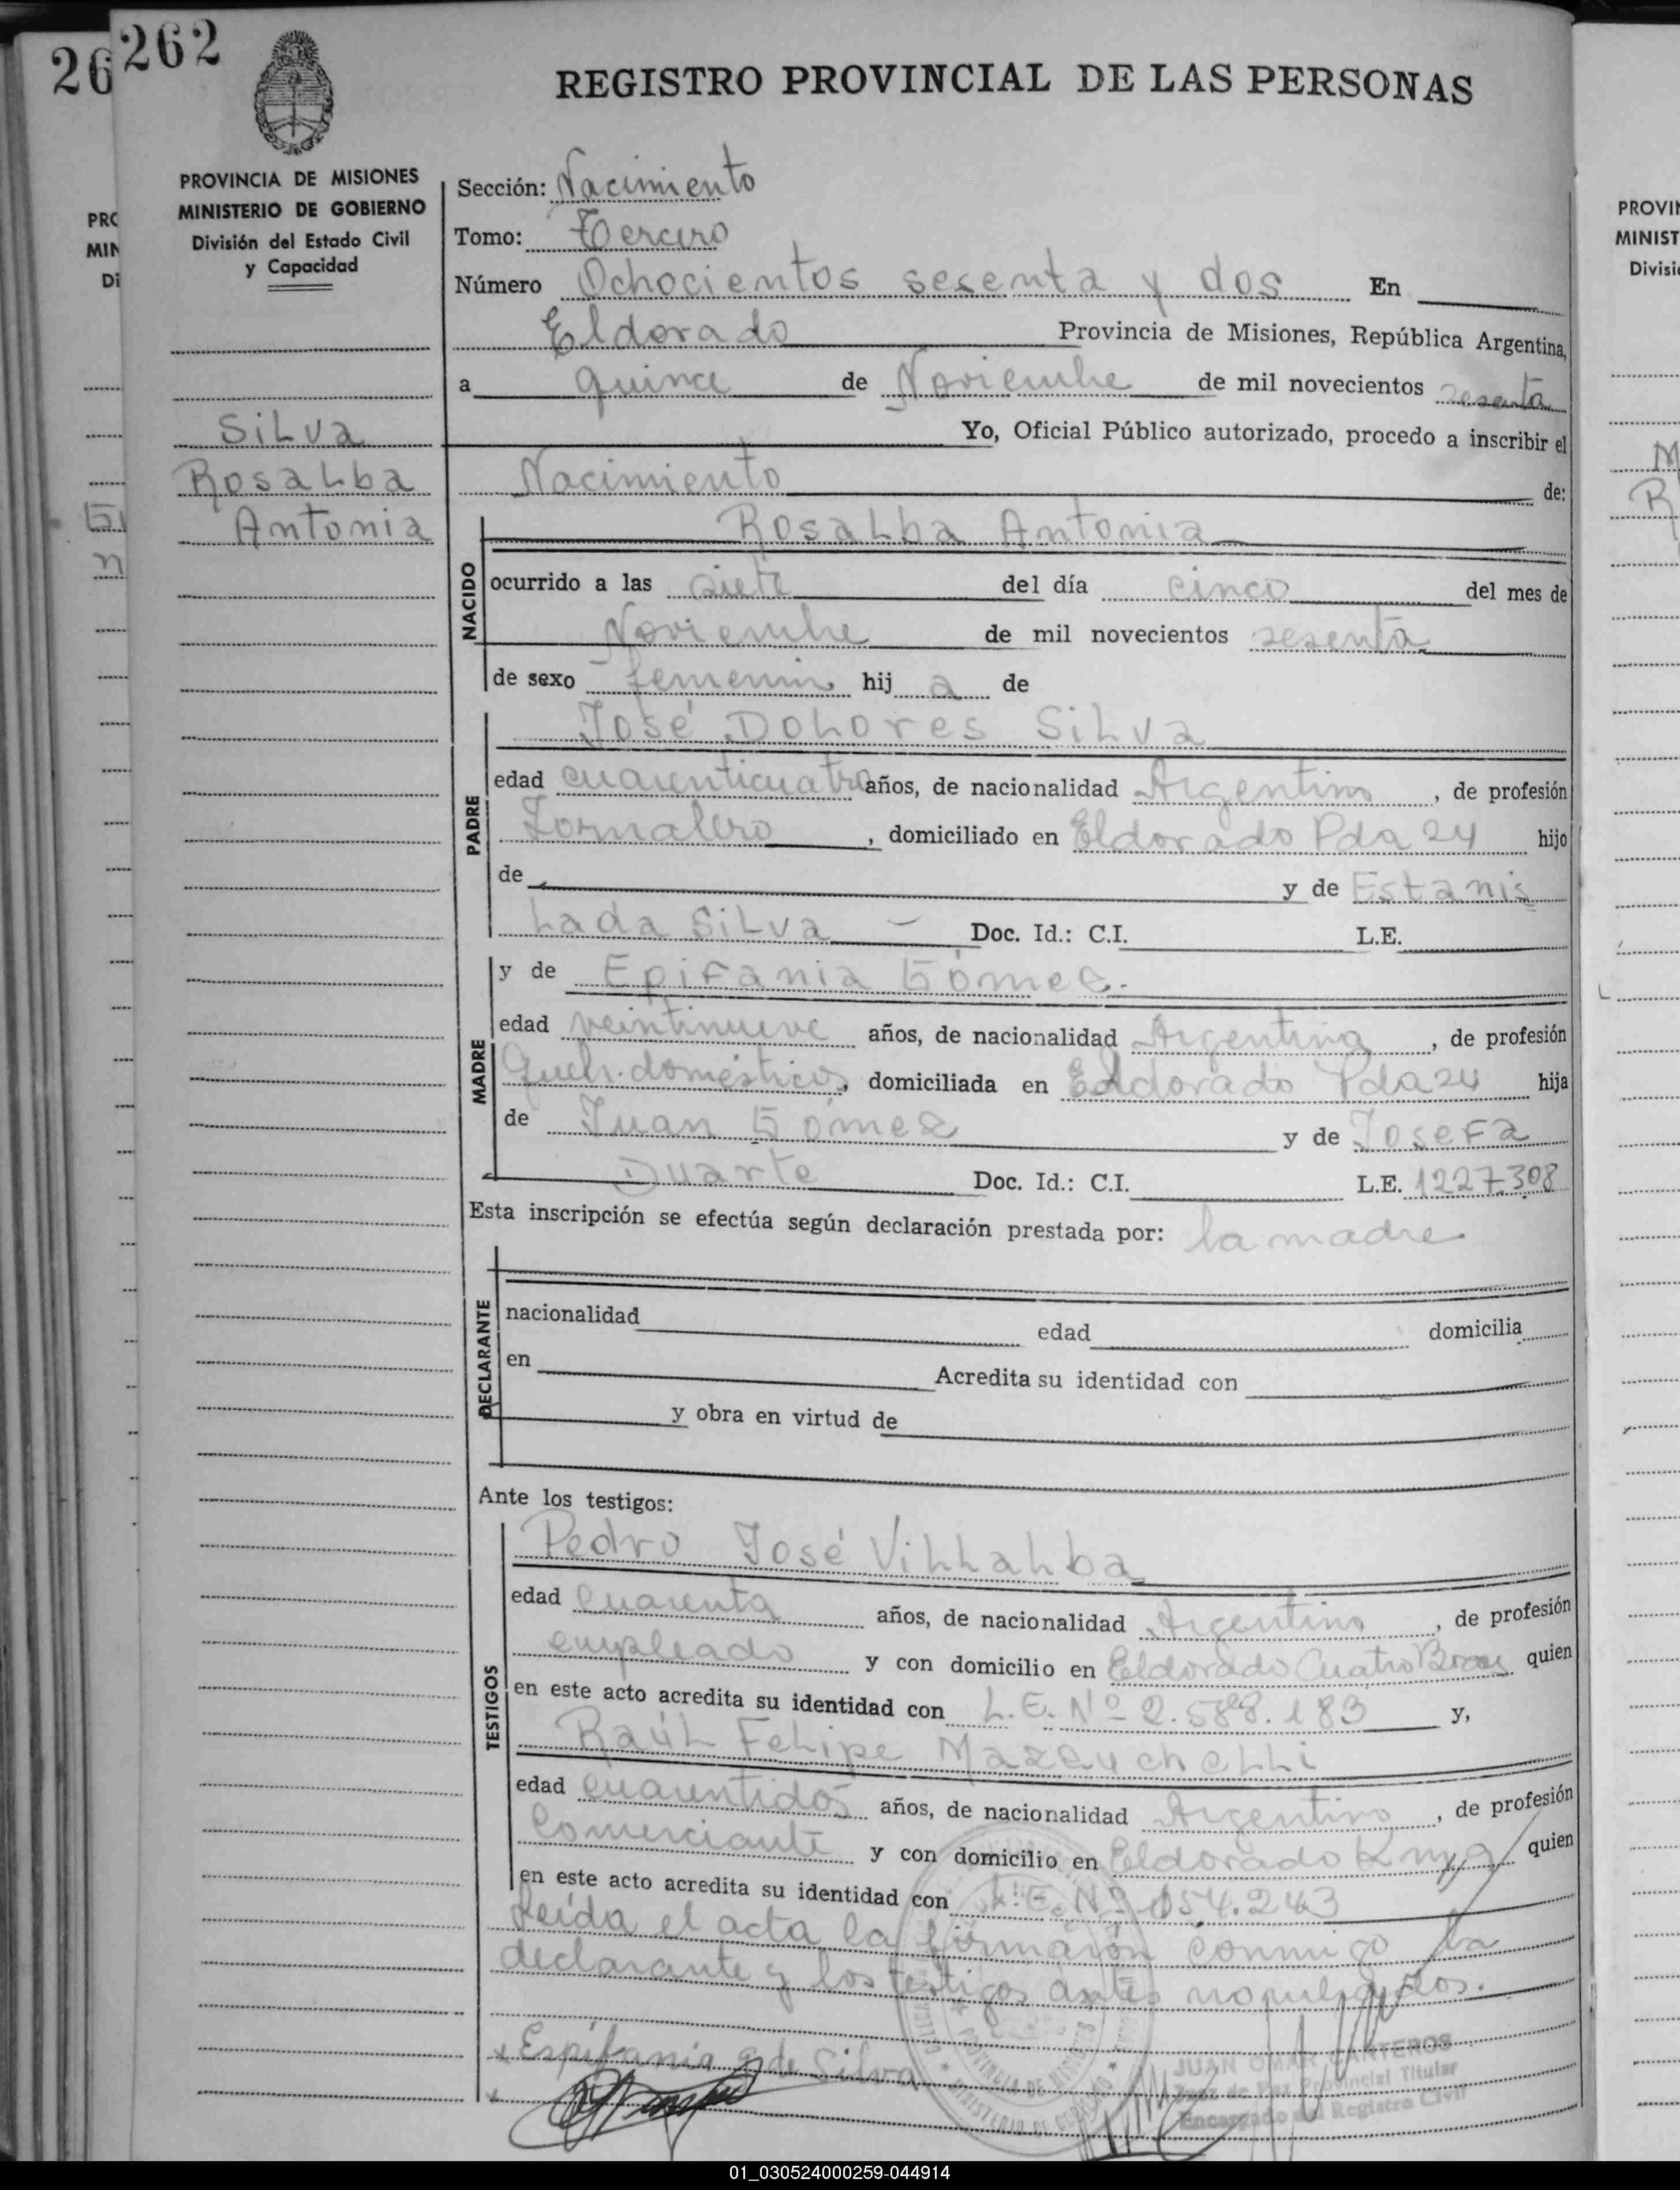 26 262
REGISTRO PROVINCIAL DE LAS PERSONAS
PROVINCIA DE MISIONES
MINISTERIO DE GOBIERNO
División del Estado Civil
y Capacidad
Silva
Rosalba
Antonia
Sección: Nacimiento
Tomo: Tercero
Número Ochocientos sesenta y dos En
Eldorado Provincia de Misiones, República Argentina,
a quince de Noviembre de mil novecientos sesenta
Yo, Oficial Público autorizado, procedo a inscribir el
Nacimiento de:
NACIDO
Rosalba Antonia
ocurrido a las siete del día cinco del mes de
Noviembre de mil novecientos sesenta
de sexo femenino hij a de
PADRE
José Dolores Silva
edad cuarenticuatro años, de nacionalidad Argentino, de profesión
Jornalero, domiciliado en Eldorado Pda 24 hijo
de y de Estanis
lada Silva Doc. Id.: C.I. L.E.
MADRE
y de Epifania Gómez.
edad veintinueve años, de nacionalidad Argentina, de profesión
Queh. domésticos, domiciliada en Eldorado Pda 24 hija
de Juan Gómez y de Josefa
Duarte Doc. Id.: C.I. L.E. 1227308
Esta inscripción se efectúa según declaración prestada por: la madre
DECLARANTE
nacionalidad edad domicilia
en Acredita su identidad con
y obra en virtud de
Ante los testigos:
TESTIGOS
Pedro José Villalba
edad cuarenta años, de nacionalidad Argentino, de profesión
empleado y con domicilio en Eldorado Cuatro quien
en este acto acredita su identidad con L.E. Nº 2.588.183 y,
Raúl Felipe Mazzuchelli
edad cuarentidós años, de nacionalidad Argentino, de profesión
Comerciante y con domicilio en Eldorado Km 9 quien
en este acto acredita su identidad con L.E. Nº 154.243
Leída el acta la firmaron conmigo la
declarante y los testigos antes nombrados.
x Espifania g de Silva
x
PROVINCIA DE MISIONES
MINISTERIO DE GOBIERNO
JUAN OMAR CANTEROS
Juez de Paz Provincial Titular
Encargado del Registro Civil
01_030524000259-044914